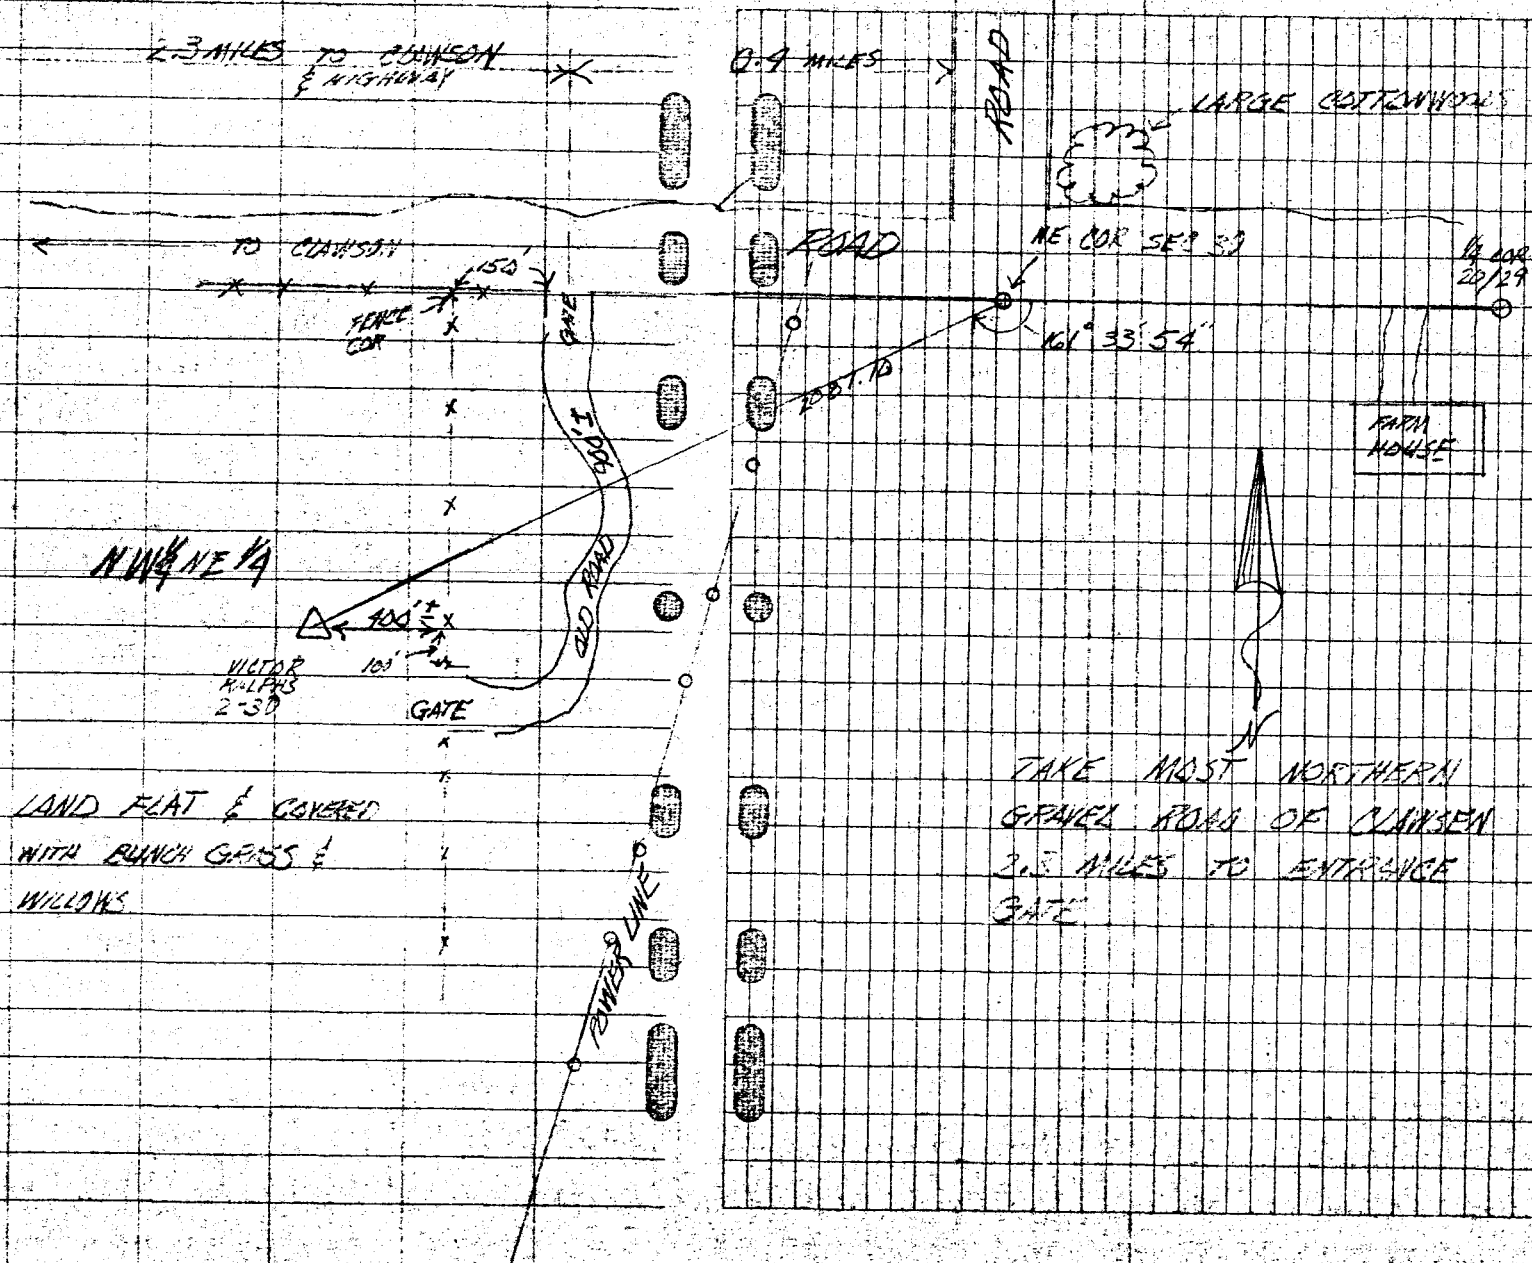 2.3 MILES TO CLAWSON
& HIGHWAY
0.4 MILES
ROAD
LARGE COTTONWOODS
TO CLAWSON
150'
ROAD
NE COR SEC 30
1/4 COR
20/29
FENCE
COR
GATE
161° 33' 54"
2081.10
FARM
HOUSE
900' ±
OLD ROAD
NW 1/4 NE 1/4
400' ±
100'
VICTOR
RALPHS
2-30
GATE
N
LAND FLAT & COVERED
WITH BUNCH GRASS &
WILLOWS
TAKE MOST NORTHERN
GRAVEL ROAD OF CLAWSEN
2.3 MILES TO ENTRANCE
GATE
POWER LINE